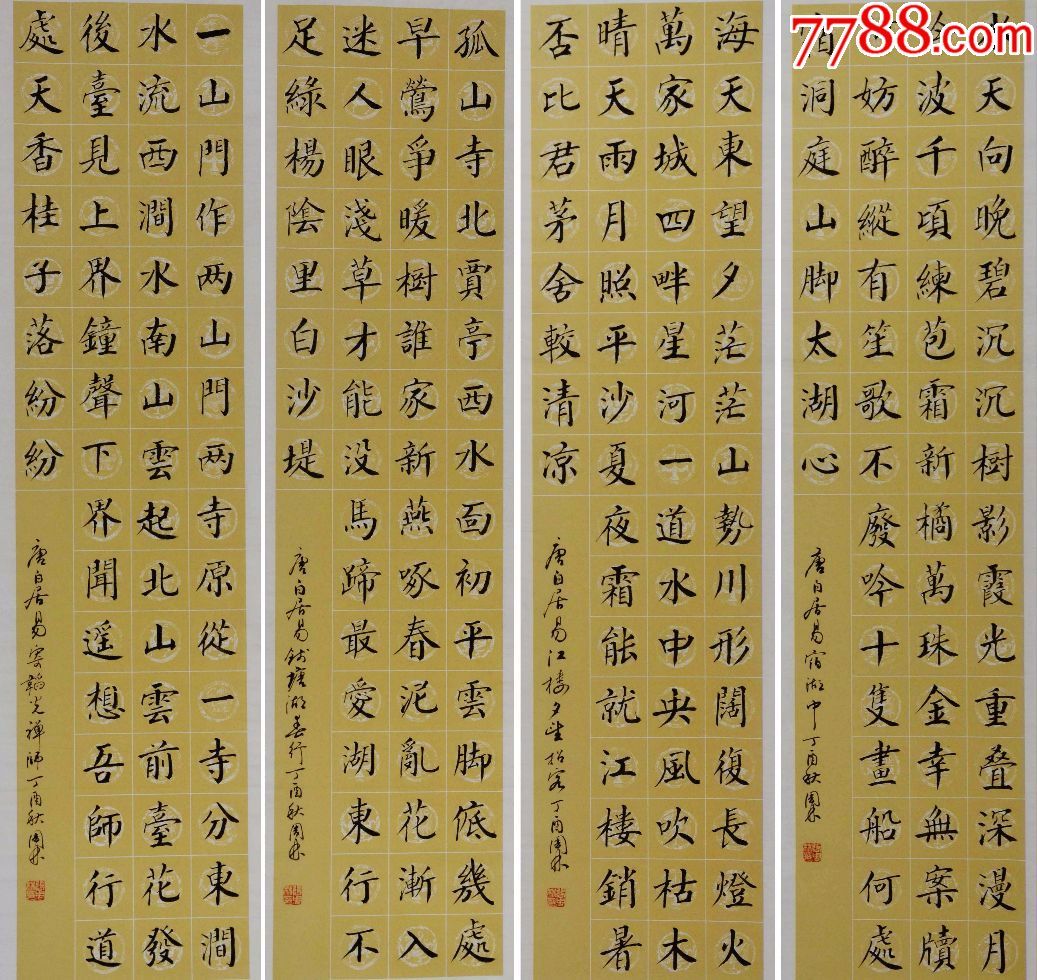 7788.com
水天向晚碧沉沉樹影霞光重叠深漫月
冷波千頃練苞霜新橘萬珠金幸無案牘
妨醉縱有笙歌不廢吟十隻畫船何處
宿洞庭山脚太湖心
唐白居易宿湖中丁酉秋
海天東望夕茫茫山勢川形闊復長燈火
萬家城四畔星河一道水中央風吹枯木
晴天雨月照平沙夏夜霜能就江樓銷暑
否比君茅舍較清凉
唐白居易江樓夕望招客丁酉
孤山寺北賈亭西水面初平雲脚低幾處
早鶯爭暖樹誰家新燕啄春泥亂花漸入
迷人眼淺草才能没馬蹄最愛湖東行不
足綠楊陰里白沙堤
唐白居易錢塘湖春行丁酉秋
一山門作两山門两寺原從一寺分東澗
水流西澗水南山雲起北山雲前臺花發
後臺見上界鐘聲下界聞遥想吾師行道
處天香桂子落紛紛
唐白居易寄韜光禪師丁酉秋